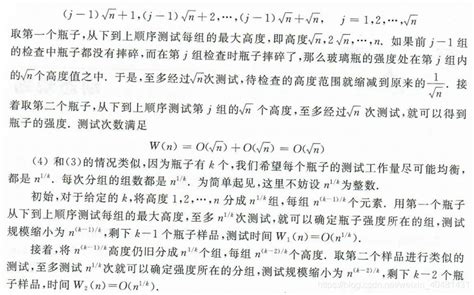 (j－1)√n＋1,(j－1)√n＋2,…,(j－1)√n＋√n,　j＝1,2,…,√n
取第一个瓶子,从下到上顺序测试每组的最大高度,即高度√n,2√n,…,n. 如果前 j－1 组
的检查中瓶子都没有摔碎,而在第 j 组检查时瓶子摔碎了,那么玻璃瓶的强度处在第 j 组内
的√n个高度值之中. 于是,至多经过√n次测试,待检查的高度范围就缩减到原来的1/√n. 接
着取第二个瓶子,从下到上顺序测试第 j 组的√n 个高度,至多经过√n 次测试,就可以得到
瓶子的强度. 测试次数满足
W(n)＝O(√n)＋O(√n)＝O(√n)
(4) 和(3)的情况类似,因为瓶子有 k 个,我们希望每个瓶子的测试工作量尽可能均衡,
都是 n^{1/k}. 每次分组的组数都是 n^{1/k}. 为简单起见,这里不妨设 n^{1/k}为整数.
初始,对于给定的 k,将高度 1,2,…,n 分成 n^{1/k}组,每组 n^{(k-1)/k}个元素. 用第一个瓶子
从下到上顺序测试每组的最大高度,至多 n^{1/k}次测试,就可以确定瓶子强度所在的组,测试
规模缩小为 n^{(k-1)/k},剩下 k－1 个瓶子样品,测试时间 W₁(n)＝O(n^{1/k}).
接着,将 n^{(k-1)/k}个高度仍旧分成 n^{1/k}个组,每组 n^{(k-2)/k}个高度. 取第二个样品进行类似的
测试,至多测试 n^{1/k}次就可以确定强度所在的分组,测试规模缩小为 n^{(k-2)/k},剩下 k－2 个瓶
子样品,时间 W₂(n)＝O(n^{1/k}).